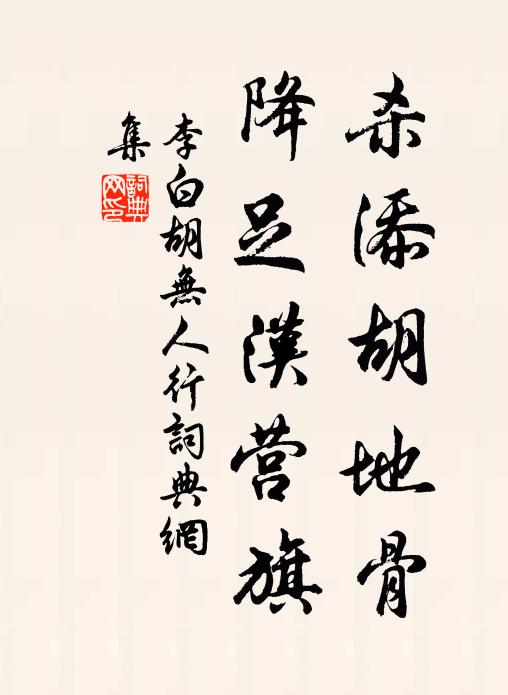 杀添胡地骨
降足漢营旗
李白胡無人行詞典網
集
詞典
网印